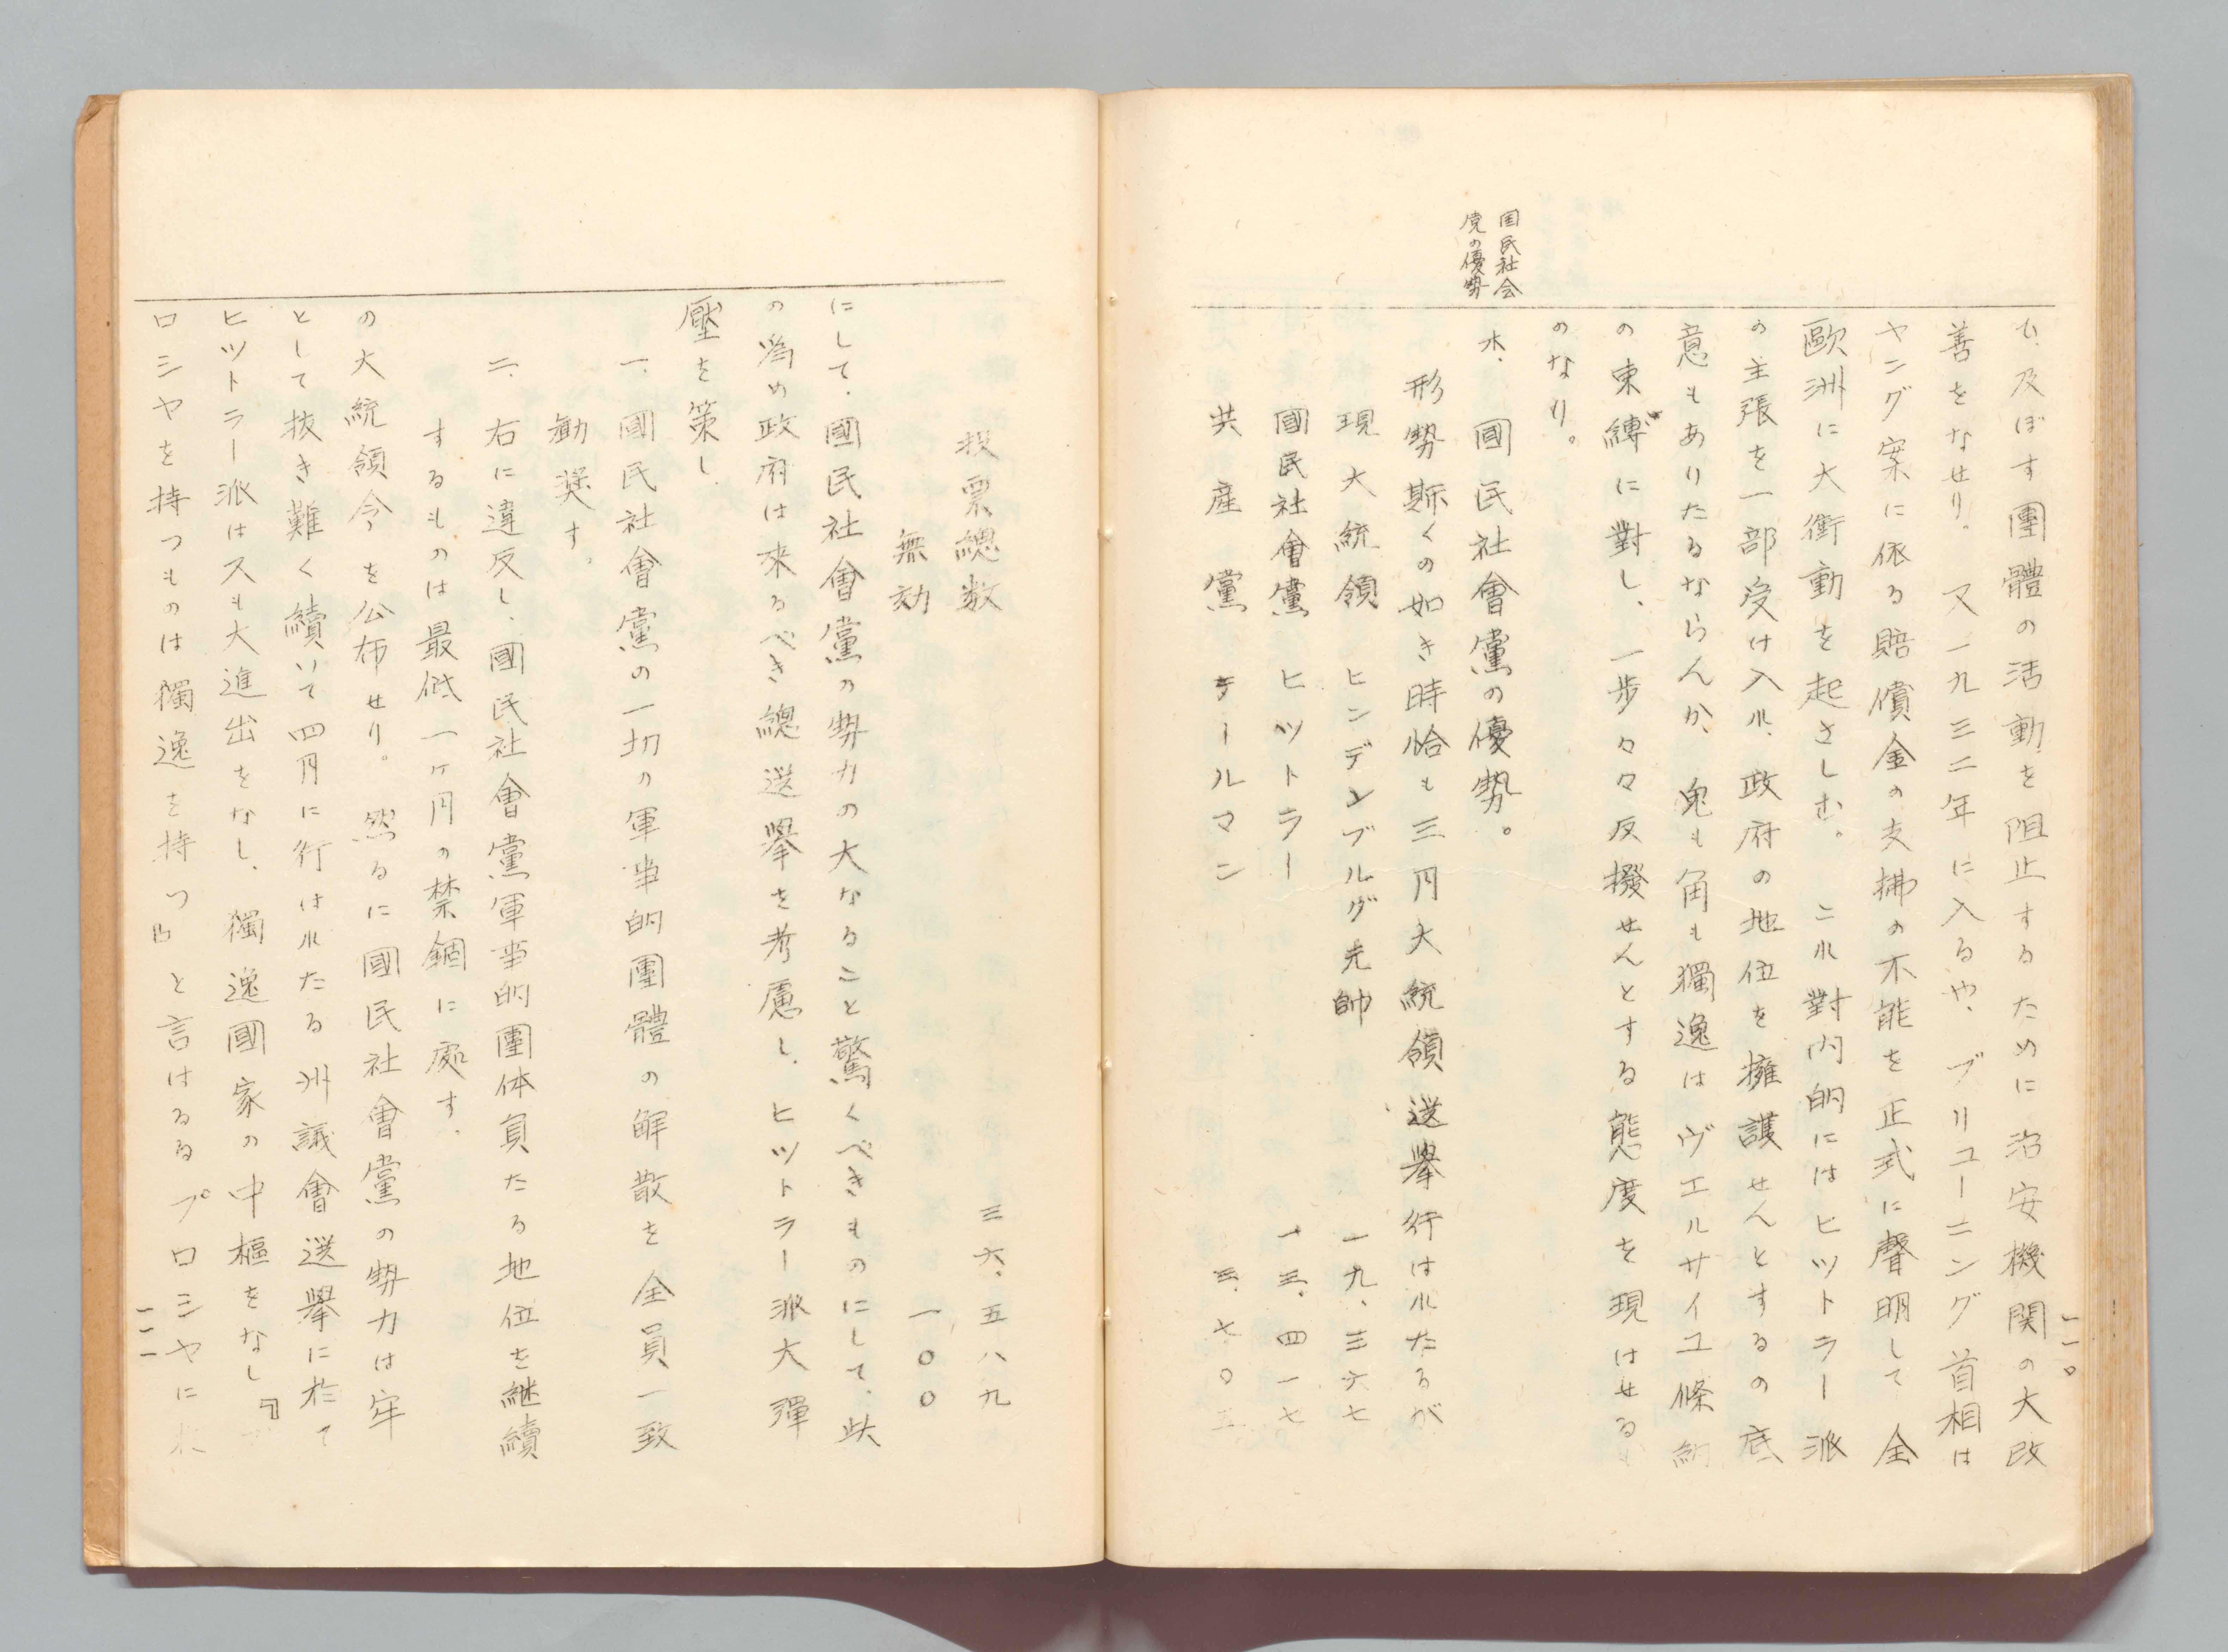 一一〇
国民社会
党の優勢
ひ、及ぼす團體の活動を阻止するために治安機関の大改
善をなせり。又一九三二年に入るや、ブリユーニング首相は
ヤング案に依る賠償金の支拂の不能を正式に聲明して全
歐洲に大衝動を起さしむ。これ對内的にはヒツトラー派
の主張を一部受け入れ、政府の地位を擁護せんとするの底
意もありたるならんか、兎も角も獨逸はヴエルサイユ條約
の束縛に對し、一歩々々反撥せんとする態度を現はせるも
のなり。
ホ、國民社會黨の優勢。
形勢斯くの如き時恰も三月大統領選擧行はれたるが
現大統領 ヒンデンブルグ元帥 一九、三六七
國民社會黨 ヒツトラー 一三、四一七
共産黨 テールマン 三、七〇五
投票總数 三六、五八九
無効 一〇〇
にして、國民社會黨の勢力の大なること驚くべきものにして、此
の為め政府は来るべき總選擧を考慮し、ヒツトラー派大彈
壓を策し、
一、國民社會黨の一切の軍事的團體の解散を全員一致
勧奨す。
二、右に違反し、國民社會黨軍事的團体員たる地位を継續
するものは最低一ケ月の禁錮に處す、
の大統領令を公布せり。然るに國民社會黨の勢力は牢
として抜き難く續いて四月に行はれたる州議會選擧に於て
ヒツトラー派は又も大進出をなし、獨逸國家の中樞をなし『プ
ロシヤを持つものは獨逸を持つ』と言はるるプロシヤに於
一一一